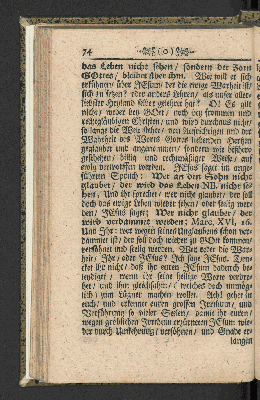 74 (o)
das Leben nicht sehen / sondern der Zorn
GOttes / bleibet über ihm. Wer will er sich
erkühnen / über JEsum der die ewige Warheit ist
sich zu setzen? oder anders lehren / als unser aller-
liebster Heyland selber gelehret hat? O! Es gilt
nicht / weder bey GOtt / noch bey frommen und
rechtgläubigen Christen / und wird durchaus nicht /
so lange die Welt stehet / von Aufrichtigen und der
Wahrheit des Worts Gottes liebenden Hertzen
geglaubet und angenommen / sondern wie
billig und rechtmäßiger Weise / auf
ewig verworffen werden. JEsus sagt im ange-
führten Spruch: Wer an den Sohn nicht
glaubet / der wird das Leben NB. nicht se-
hen / Und ihr sprechet / wer nicht glaubet / der soll
doch das ewige Leben wieder sehen / oder seelig wer-
den / JEsus saget; Wer nicht glaubet / der
wird verdammet werden; Marc. XVI, 16.
Und Ihr: wer wegen seines Unglaubens schon ver-
dammet ist / der soll noch wieder zu GOtt kommen /
versöhnet und seelig werden. Wer redet die War-
heit / Ihr / oder JEsus? Ich sage JEsus. Den-
cket ihr nicht / daß ihr euren JEsum dadurch be-
leidiget / wenn ihr seine heilige Worte verdre-
het / und ihm gleichsam / welches doch unmüg-
lich / zum Lügner machen wollet. Ach! gehet in
euch / und erkennet euren grossen Irrthum / und
Verführung so vieler Seelen / damit ihr euren /
wegen gröblichen Irrthum erzürneten JEsum wie-
der durch Bekehrung / versöhnen / und Gnade er-
langen